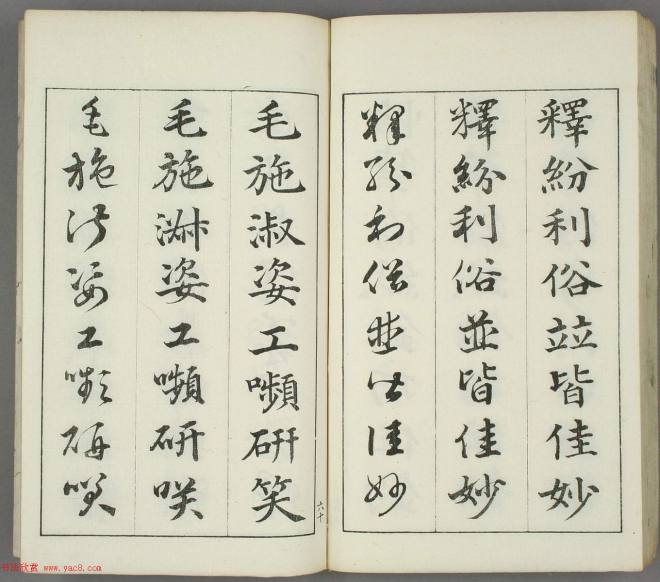 釋紛利俗竝皆佳妙
釋紛利俗並皆佳妙
釋紛利俗並皆佳妙
六十
毛施淑姿工嚬研笑
毛施淑姿工嚬研咲
毛施淑姿工嚬研咲
书法欣赏 www.yac8.com